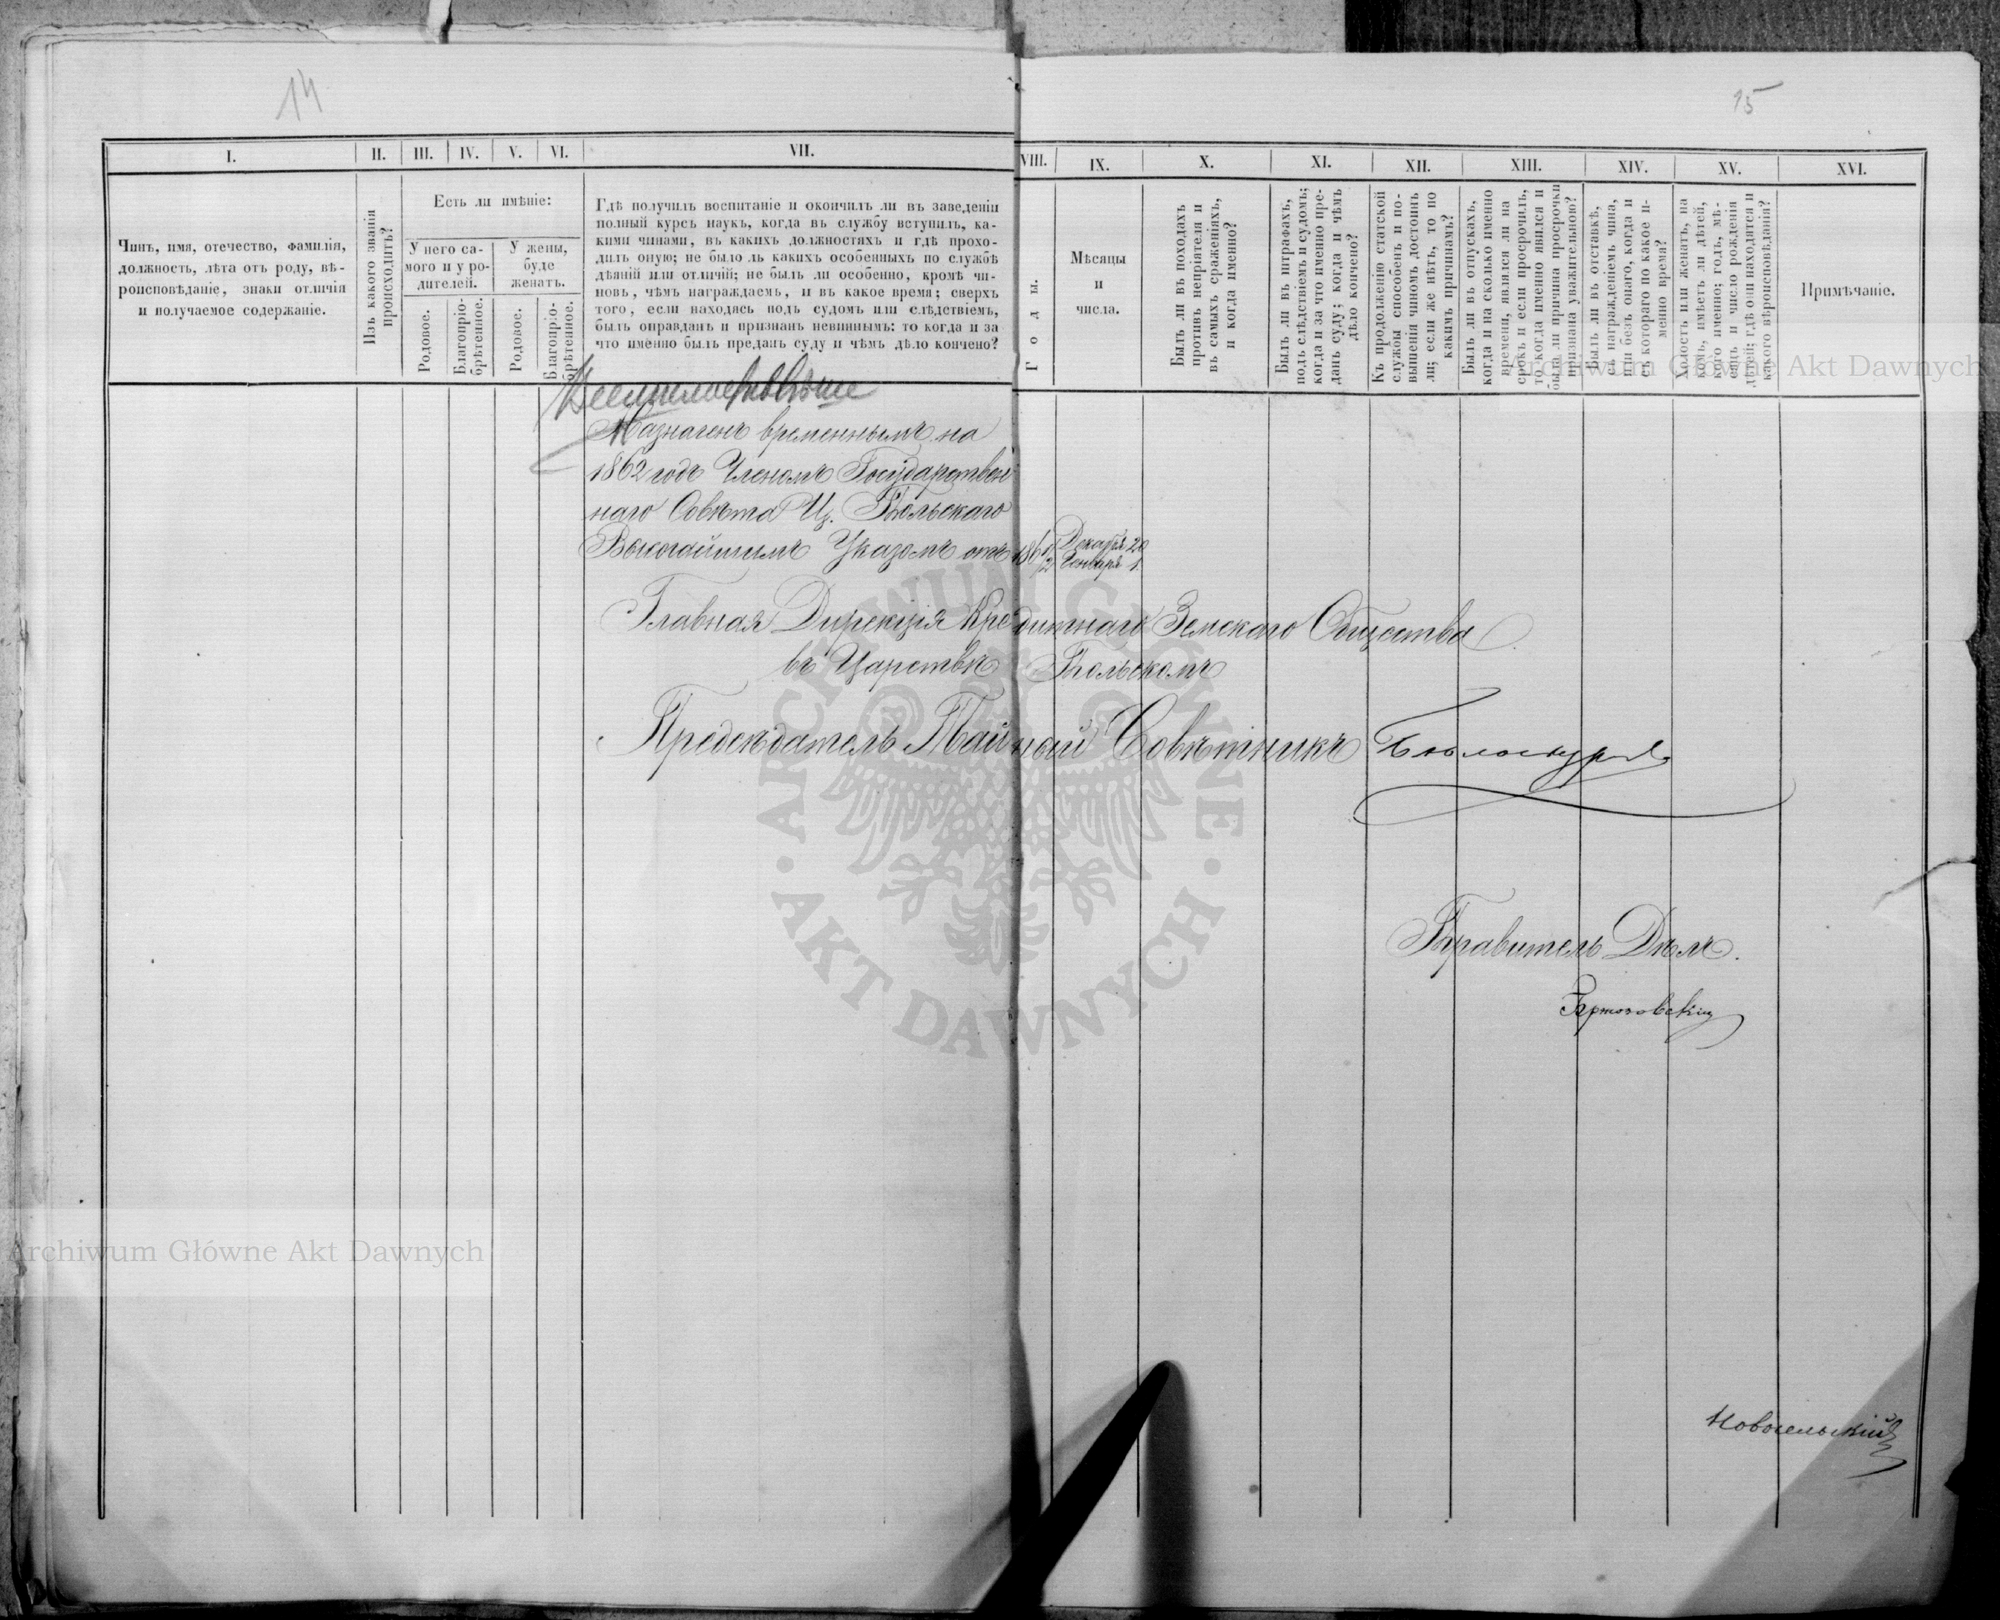 14
15
I.
II.
III.
IV.
V.
VI.
VII.
VIII.
IX.
X.
XI.
XII.
XIII.
XIV.
XV.
XVI.
Чинъ, имя, отечество, фамилія,
должность, лѣта отъ роду, вѣ-
роисповѣданіе, знаки отличія
и получаемое содержаніе.
Изъ какого званія
происходитъ?
Есть ли имѣніе:
У него са-
мого и у ро-
дителей.
У жены,
буде
женатъ.
Родовое.
Благопріо-
брѣтенное.
Родовое.
Благопріо-
брѣтенное.
Гдѣ получилъ воспитаніе и окончилъ ли въ заведеніи
полный курсъ наукъ, когда въ службу вступилъ, ка-
кими чинами, въ какихъ должностяхъ и гдѣ прохо-
дилъ оную; не было ль какихъ особенныхъ по службѣ
дѣяній или отличій; не былъ ли особенно, кромѣ чи-
новъ, чѣмъ награждаемъ, и въ какое время; сверхъ
того, если находясь подъ судомъ или слѣдствіемъ,
былъ оправданъ и признанъ невиннымъ: то когда и за
что именно былъ преданъ суду и чѣмъ дѣло кончено?
Годы.
Мѣсяцы
и
числа.
Былъ ли въ походахъ
противъ непріятеля и
въ самыхъ сраженіяхъ,
и когда именно?
Былъ ли въ штрафахъ,
подъ слѣдствіемъ и судомъ;
когда и за что именно пре-
данъ суду; когда и чѣмъ
дѣло кончено?
Къ продолженію статской
службы способенъ и по-
вышенія чиномъ достоинъ
ли; если же нѣтъ, то по
какимъ причинамъ?
Былъ ли въ отпускахъ,
когда и на сколько именно
времени, явился ли на
срокъ и если просрочилъ,
то когда именно явился и
была ли причина просрочки
признана уважительною?
Былъ ли въ отставкѣ,
съ награжденіемъ чина,
или безъ онаго, когда и
съ котораго по какое и-
менно время?
Холостъ или женатъ, на
комъ, имѣетъ ли дѣтей,
кого именно; годъ, мѣ-
сяцъ и число рожденія
дѣтей; гдѣ они находятся и
какого вѣроисповѣданія?
Примѣчаніе.
Всемилостивѣйше
Назначенъ временнымъ на
1862 годъ Членомъ Государствен-
наго Совѣта Ц. Польскаго
Высочайшимъ Указомъ отъ 1861/2 Декабря 20 Января 1.
Главная Дирекція Кредитнаго Земскаго Общества
въ Царствѣ Польскомъ
Предсѣдатель Тайный Совѣтникъ Бѣлоскурскій
Правитель Дѣлъ.
Новосельскій
Archiwum Główne Akt Dawnych
Archiwum Główne Akt Dawnych
ARCHIWUM GŁÓWNE · AKT DAWNYCH ·